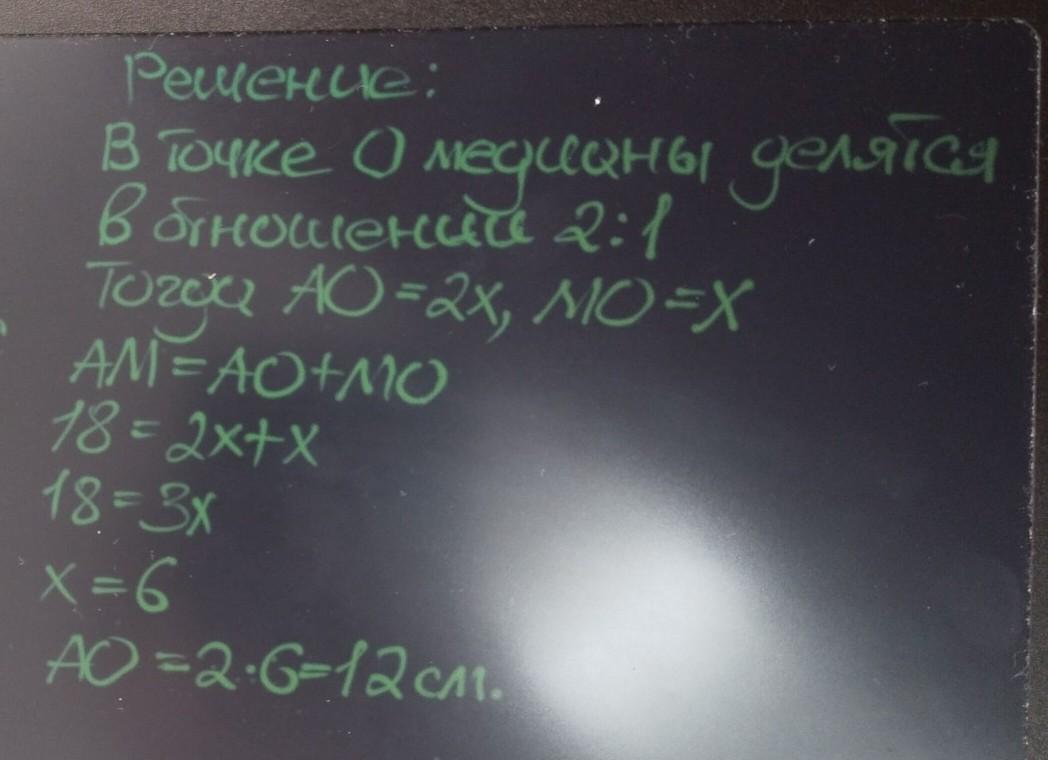 Решение:
В точке О медианы делятся
в отношении 2:1
Тогда AO=2x, MO=x
AM=AO+MO
18=2x+x
18=3x
x=6
AO=2·6=12см.